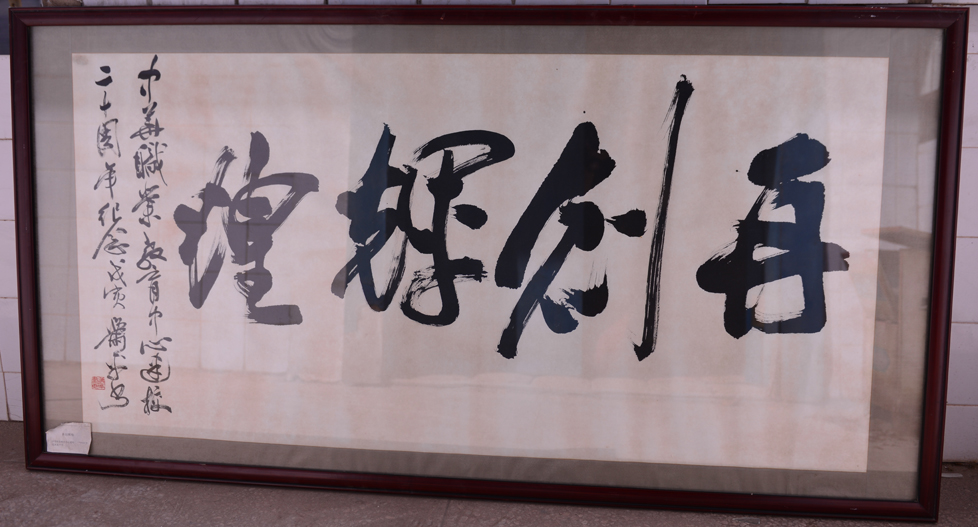 再创辉煌
中華職業教育中心建校
二十周年纪念戊寅